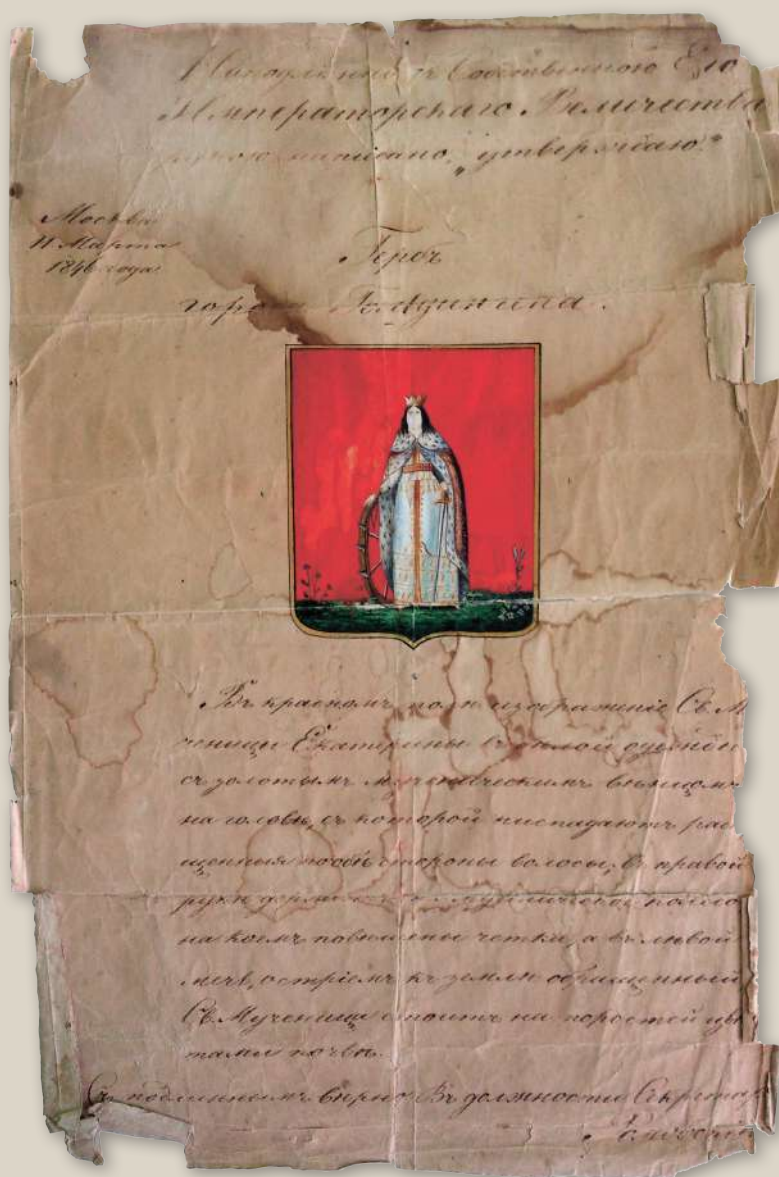 На подлинной Собственною Его
Императорскаго Величества
рукою написано „утверждаю."
Москва
11 Марта
1846 года
Гербъ
города
Въ красномъ полѣ изображеніе Св. М
ченицы Екатерины въ бѣлой одеждѣ
съ золотымъ мученическимъ вѣнцомъ
на головѣ, съ которой ниспадаютъ рас
щенныя по обѣ стороны волосы; въ правой
рукѣ колесо
на коемъ повѣшены четки, а въ лѣвой
мечъ, остріемъ къ землѣ обращенный
Св. Мученица стоитъ на поростей цвѣ
тами почвѣ.
Съ подлиннымъ вѣрно Въ должности Секретар